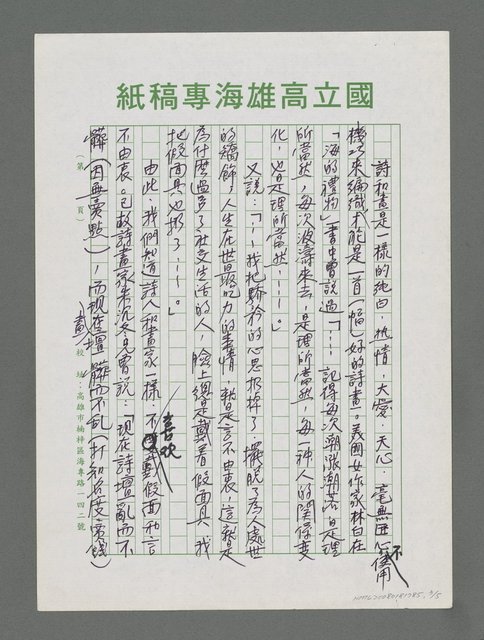 國立高雄海專稿紙
詩和畫是一樣的純白，熱情，大愛，天心，毫無匠心，不備用
機巧來編織才能是一首（幅）好的詩畫。美國女作家林白在
「海的禮物」書中曾說過「…記得每次潮漲潮落皆是理
所當然，每次波濤來去，是理所當然，每一种人的關係变
化，也是理所當然…。」
又說：「…我把驕矜的心思扔掉了，擺脫了為人處世
的矯飾，人生在世最吃力的事情，就是言不由衷，這就是
為什麼過多了社交生活的人，臉上總是戴着假面具，我
把假面具也拋了…。」
由此，我們知道詩人和畫家一樣，不喜歡戴假面和言
不由衷。已故詩畫家朱沉冬兄曾說：「現在詩壇亂而不
髒（因無賣點），而現在畫壇髒而不乱（打知名度索錢）
（第　頁）
校址：高雄市楠梓區海專路一四二號
NMTL20080181785, 3/5